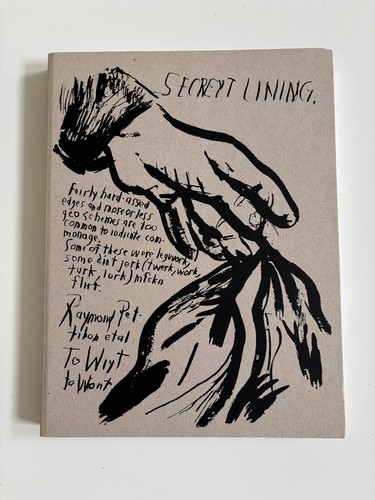 SECREYT LINING.
Fairly hard-assed
edges and more or less
geo schemes are too
common to indicate com-
monage.
Som of these were legwork,
some dint jerk (twerk, work,
turk, lurk) mfckn
flirt.
Raymond Pet-
tibon etal
To Wiyt
to Wont